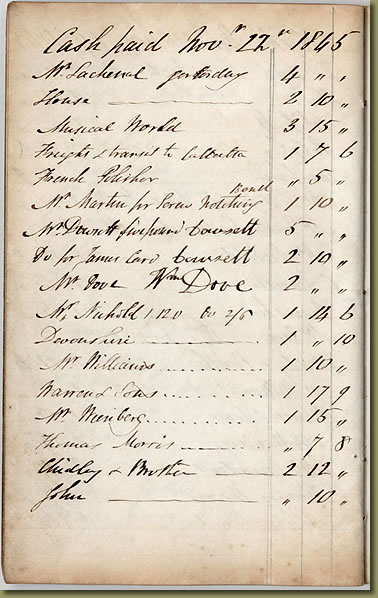 Cash paid Novr. 22nd 1845
Mr Lachenal yesterday 4 " "
House 2 10 "
Musical World 3 15 "
Freight & transit to Calcutta 1 7 6
French Polisher " 5 "
Bond
Mr Martin for Screw Notching 1 10 "
Mr Dowsett five pound Cowsett 5 " "
Do for James Card Cowsett 2 10 "
Mr Dove Wm Dove 2 " "
Mr Nickold 1.120 to 2/6 1 14 6
Devonshire 1 " 10
Mr Williams 1 10 "
Warren & Sons 1 17 9
Mr 1 15 "
Thomas Morris " 7 8
Chidley & Brother 2 12 "
John " 10 "